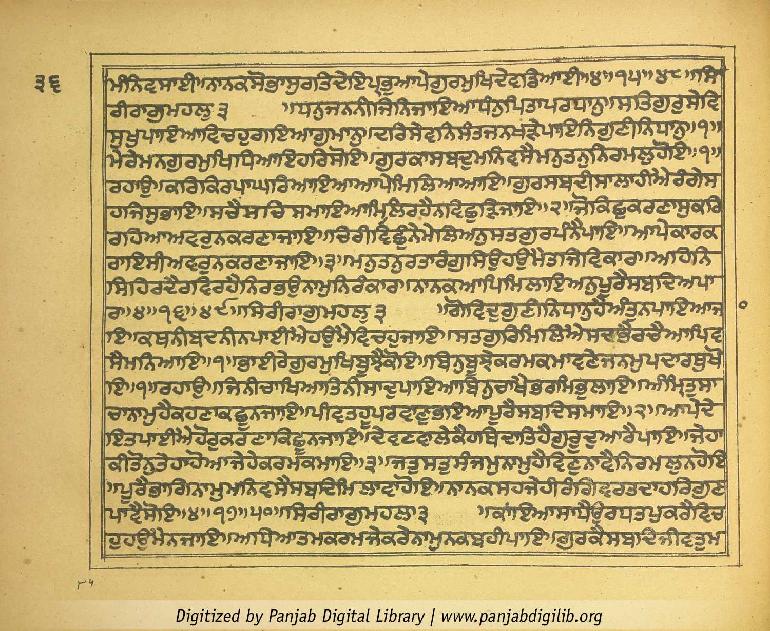 ੩੬
ਮੰਨਿਵਸਾਈ॥ਨਾਨਕਸੋਭਾਸੁਰਤਿਦੇਇਪ੍ਰਭੁਆਪੇਗੁਰਮੁਖਿਦੇਵਡਿਆਈ॥੪॥੧੫॥੪੮॥ਸਿ
ਰੀਰਾਗੁਮਹਲੁ ੩ ॥ਧਨੁਜਨਨੀਜਿਨਿਜਾਇਆਧੰਨੁਪਿਤਾਪਰਧਾਨੁ॥ਸਤਿਗੁਰੁਸੇਵਿ
ਸੁਖੁਪਾਇਆਵਿਚਹੁਗਇਆਗੁਮਾਨੁ॥ਦਰਿਸੇਵਨਿਸੰਤਜਨਖੜੇਪਾਇਨਿਗੁਣੀਨਿਧਾਨੁ॥੧॥
ਮੇਰੇਮਨਗੁਰਮੁਖਿਧਿਆਇਹਰਿਸੋਇ॥ਗੁਰਕਾਸਬਦੁਮਨਿਵਸੈਮਨੁਤਨੁਨਿਰਮਲੁਹੋਇ॥੧॥
ਰਹਾਉ॥ਕਰਿਕਿਰਪਾਘਰਿਆਇਆਆਪੇਮਿਲਿਆਆਇ॥ਗੁਰਸਬਦੀਸਾਲਾਹੀਐਰੰਗੇਸ
ਹਜਿਸੁਭਾਇ॥ਸਚੈਸਚਿ ਸਮਾਇਆਮਿਲਿਰਹੈਨਵਿਛੁੜਿਜਾਇ॥੨॥ਜੋਕਿਛੁਕਰਣਾਸੁਕਰਿ
ਰਹਿਆਅਵਰੁਨਕਰਣਾਜਾਇ॥ਚਿਰੀਵਿਛੁੰਨੇਮੇਲਿਅਨੁਸਤਗੁਰਪੰਨੈਪਾਇ॥ਆਪੇਕਾਰਕ
ਰਾਇਸੀਅਵਰੁਨਕਰਣਾਜਾਇ॥੩॥ਮਨੁਤਨੁਰਤਾਰੰਗੁਸਿਉਹਉਮੈਤਜਿਵਿਕਾਰ॥ਅਹਿਨਿ
ਸਿਹਿਰਦੈਰਵਿਰਹੈਨਿਰਭਉਨਾਮੁਨਿਰੰਕਾਰ॥ਨਾਨਕਆਪਿਮਿਲਾਇਅਨੁਪੂਰੈਸਬਦਿਅਪਾ
ਰ॥੪॥੧੬॥੪੯॥ਸਿਰੀਰਾਗੁਮਹਲੁ ੩ ॥ਗੋਵਿਦੁਗੁਣੀਨਿਧਾਨੁਹੈਅੰਤੁਨਪਾਇਆਜ
ਇ॥ਕਥਨੀਬਦਨੀਨਪਾਈਐਹਉਮੈਵਿਚਹੁਜਾਇ॥ਸਤਗੁਰਿਮਿਲਿਐਸਦਭੈਰਚੈਆਪਿਵ
ਸੈਮਨਿਆਇ॥੧॥ਭਾਈਰੇਗੁਰਮੁਖਿਬੂਝੈਕੋਇ॥ਬਿਨੁਬੂਝੇਕਰਮਕਮਾਵਣੇਜਨਮੁਪਦਾਰਥੁਖੋ
ਇ॥੧॥ਰਹਾਉ॥ਜਿਨੀਚਾਖਿਆਤਿਨੀਸਾਦੁਪਾਇਆਬਿਨੁਚਾਖੇਭਰਮਿਭੁਲਾਇ॥ਅੰਮ੍ਰਿਤੁਸਾ
ਚਾਨਾਮੁਹੈਕਹਣਾਕਛੂਨਜਾਇ॥ਪੀਵਤਹੂਪਰਵਾਣੁਭਇਆਪੂਰੈਸਬਦਿਸਮਾਇ॥੨॥ਆਪੇਦੇ
ਇਤਪਾਈਐਹੋਰੁਕਰਣਾਕਿਛੂਨਜਾਇ॥ਦੇਵਣਵਾਲੇਕੈਹਥਿਦਾਤਿਹੈਗੁਰੂਦੁਆਰੈਪਾਇ॥ਜੇਹਾ
ਕੀਤੋਨੁਤੇਹਾਹੋਆਜੇਹੇਕਰਮਕਮਾਇ॥੩॥ਜਤੁਸਤੁਸੰਜਮੁਨਾਮੁਹੈਵਿਣੁਨਾਵੈਨਿਰਮਲੁਨਹੋਇ
॥ਪੂਰੈਭਾਗਿਨਾਮੁਮਨਿਵਸੈਸਬਦਿਮਿਲਾਵਾਹੋਇ॥ਨਾਨਕਸਹਜੇਹੀਰੰਗਿਵਰਤਦਾਹਰਿਗੁਣ
ਪਾਵੈਸੋਇ॥੪॥੧੭॥੫੦॥ਸਿਰੀਰਾਗੁਮਹਲਾ ੩ ॥ਕਾਂਇਆਸਾਧੈਉਰਧਤਪੁਕਰੈਵਿਚ
ਹੁਹਉਮੈਨਜਾਇ॥ਅਧਿਆਤਮਕਰਮਜੇਕਰੇਨਾਮੁਨਕਬਹੀਪਾਇ॥ਗੁਰਕੈਸਬਦਿਜੀਵਤੁਮ
Digitized by Panjab Digital Library | www.panjabdigilib.org